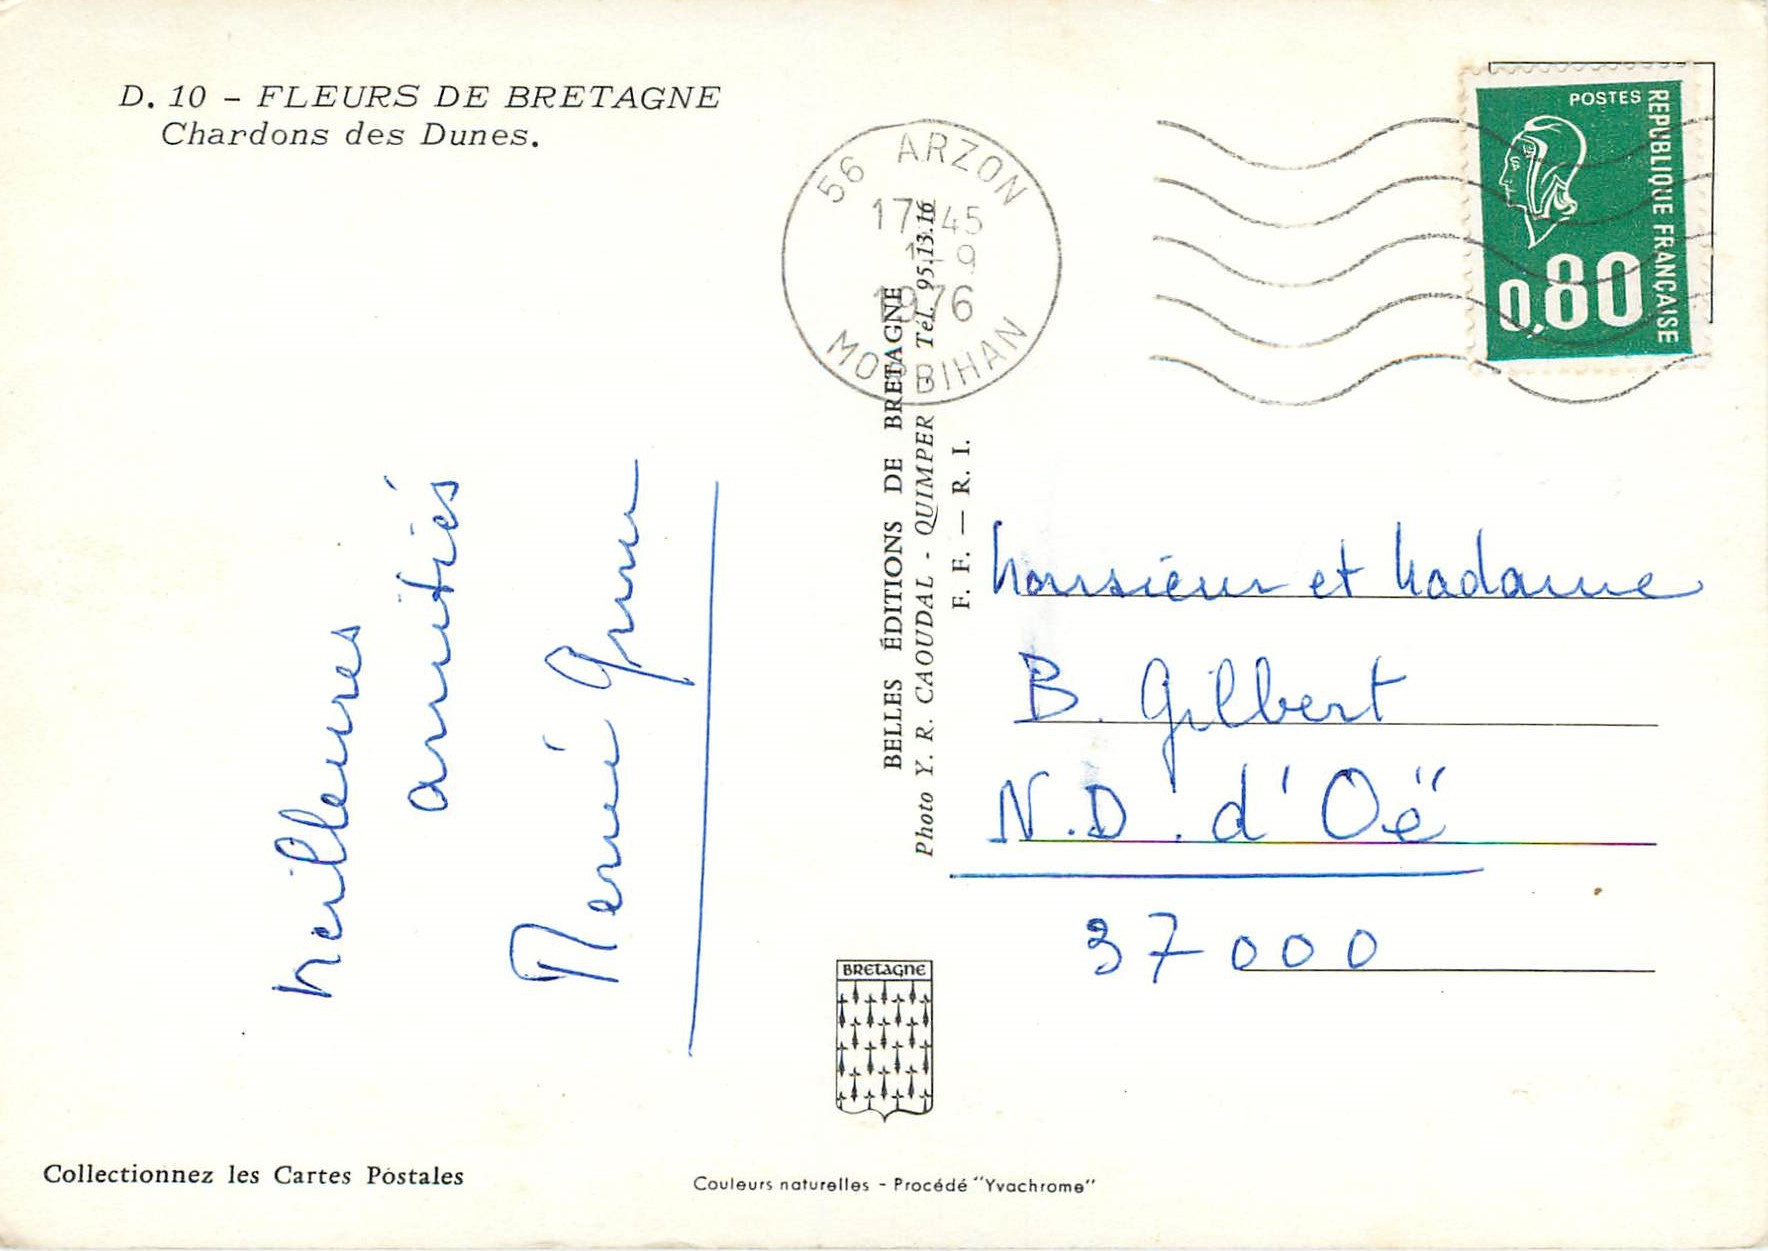 D. 10 - FLEURS DE BRETAGNE
Chardons des Dunes.
56 ARZON
17 45
1-9
1976
MORBIHAN
POSTES
REPUBLIQUE FRANÇAISE
0,80
Meilleures
amitiés
BELLES ÉDITIONS DE BRETAGNE
Photo Y. R. CAOUDAL - QUIMPER - Tél. 95.13.16
F. F. — R. I.
Monsieur et Madame
B. Gilbert
N.D. d'Oë
37000
BRETAGNE
Collectionnez les Cartes Postales
Couleurs naturelles - Procédé "Yvachrome"